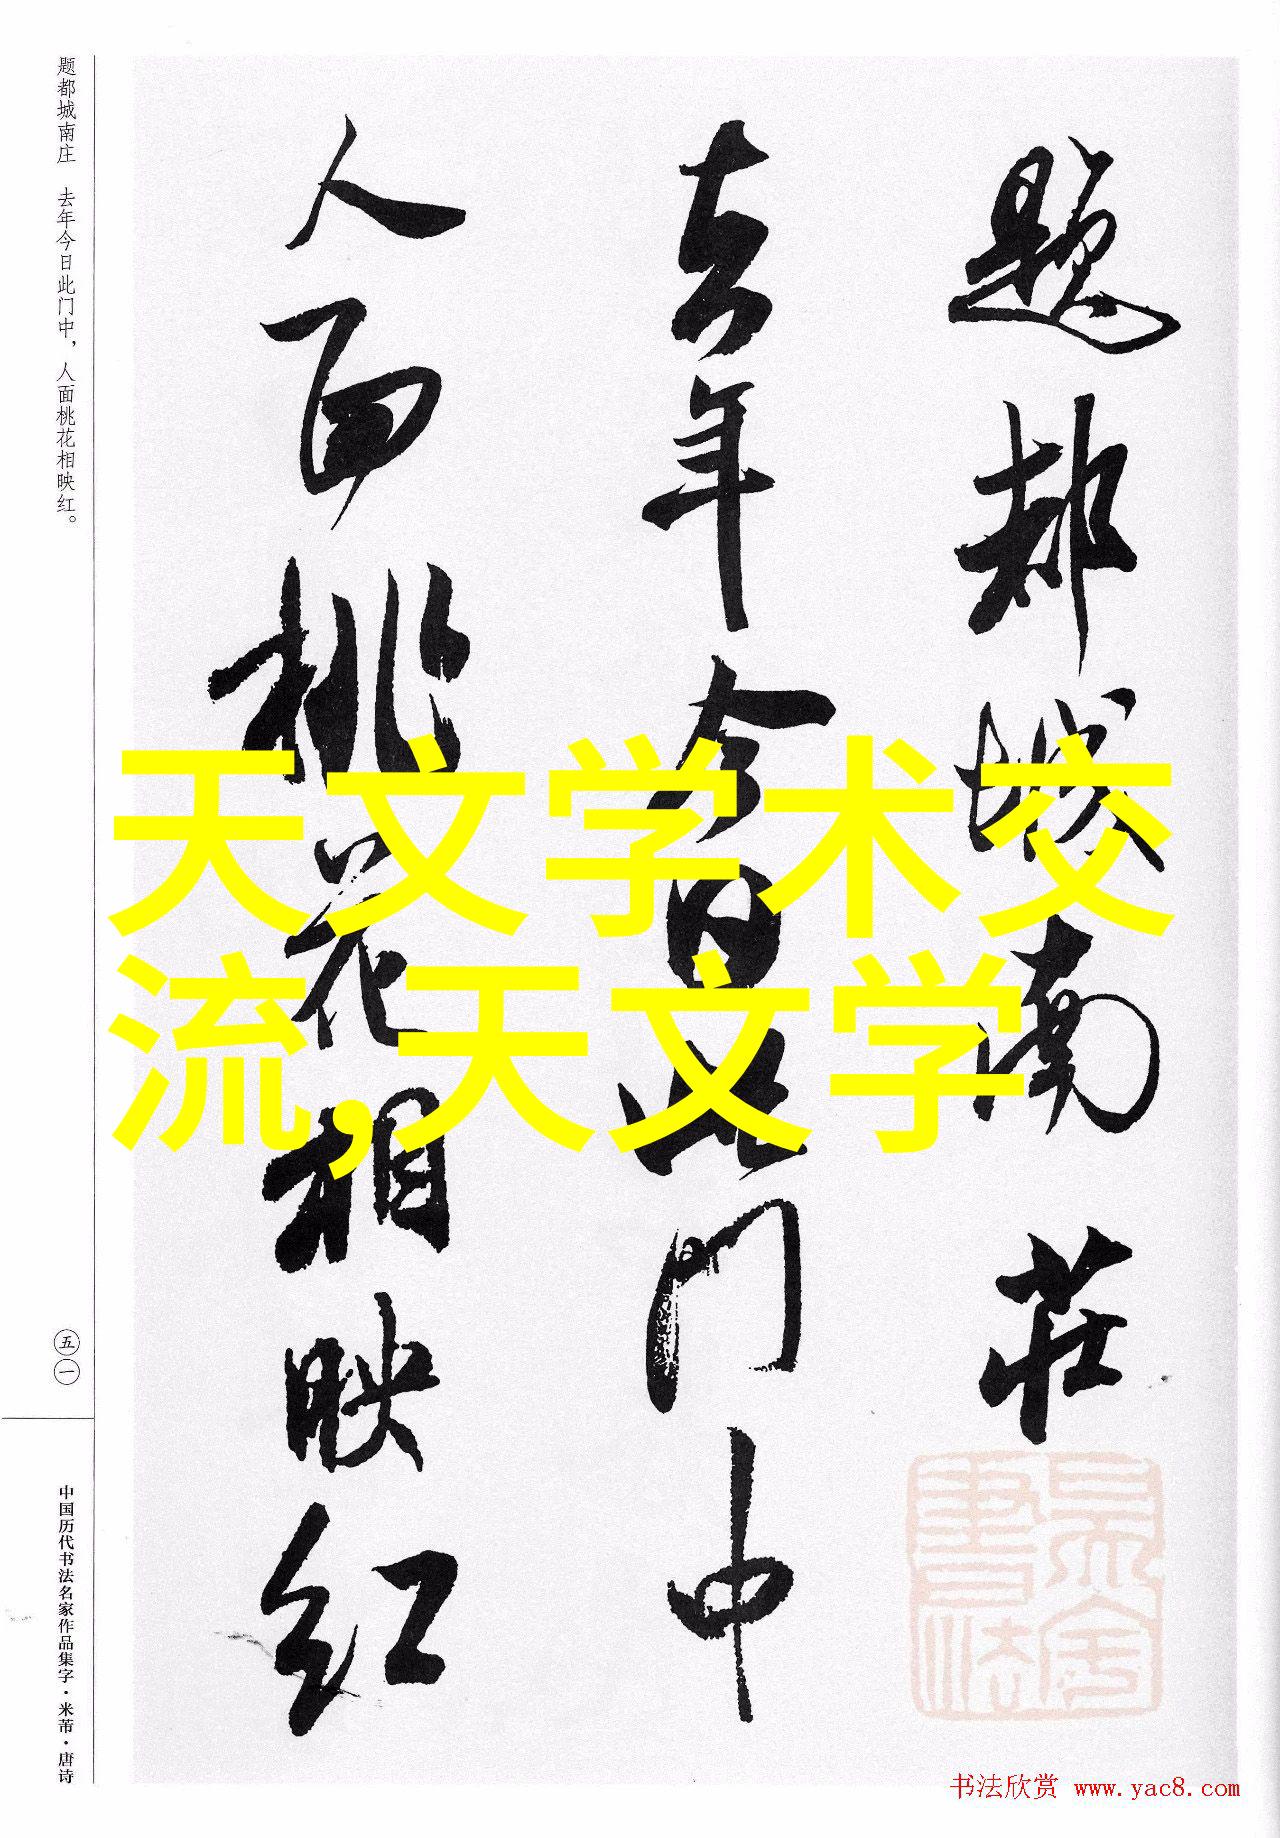 題都城南莊
去年今日此門中
人面桃花相映红
天文学术交
流,天文学
题都城南庄 去年今日此门中，人面桃花相映红。
五一
中国历代书法名家作品集字·米芾·唐诗
书法欣赏 www.yac8.com